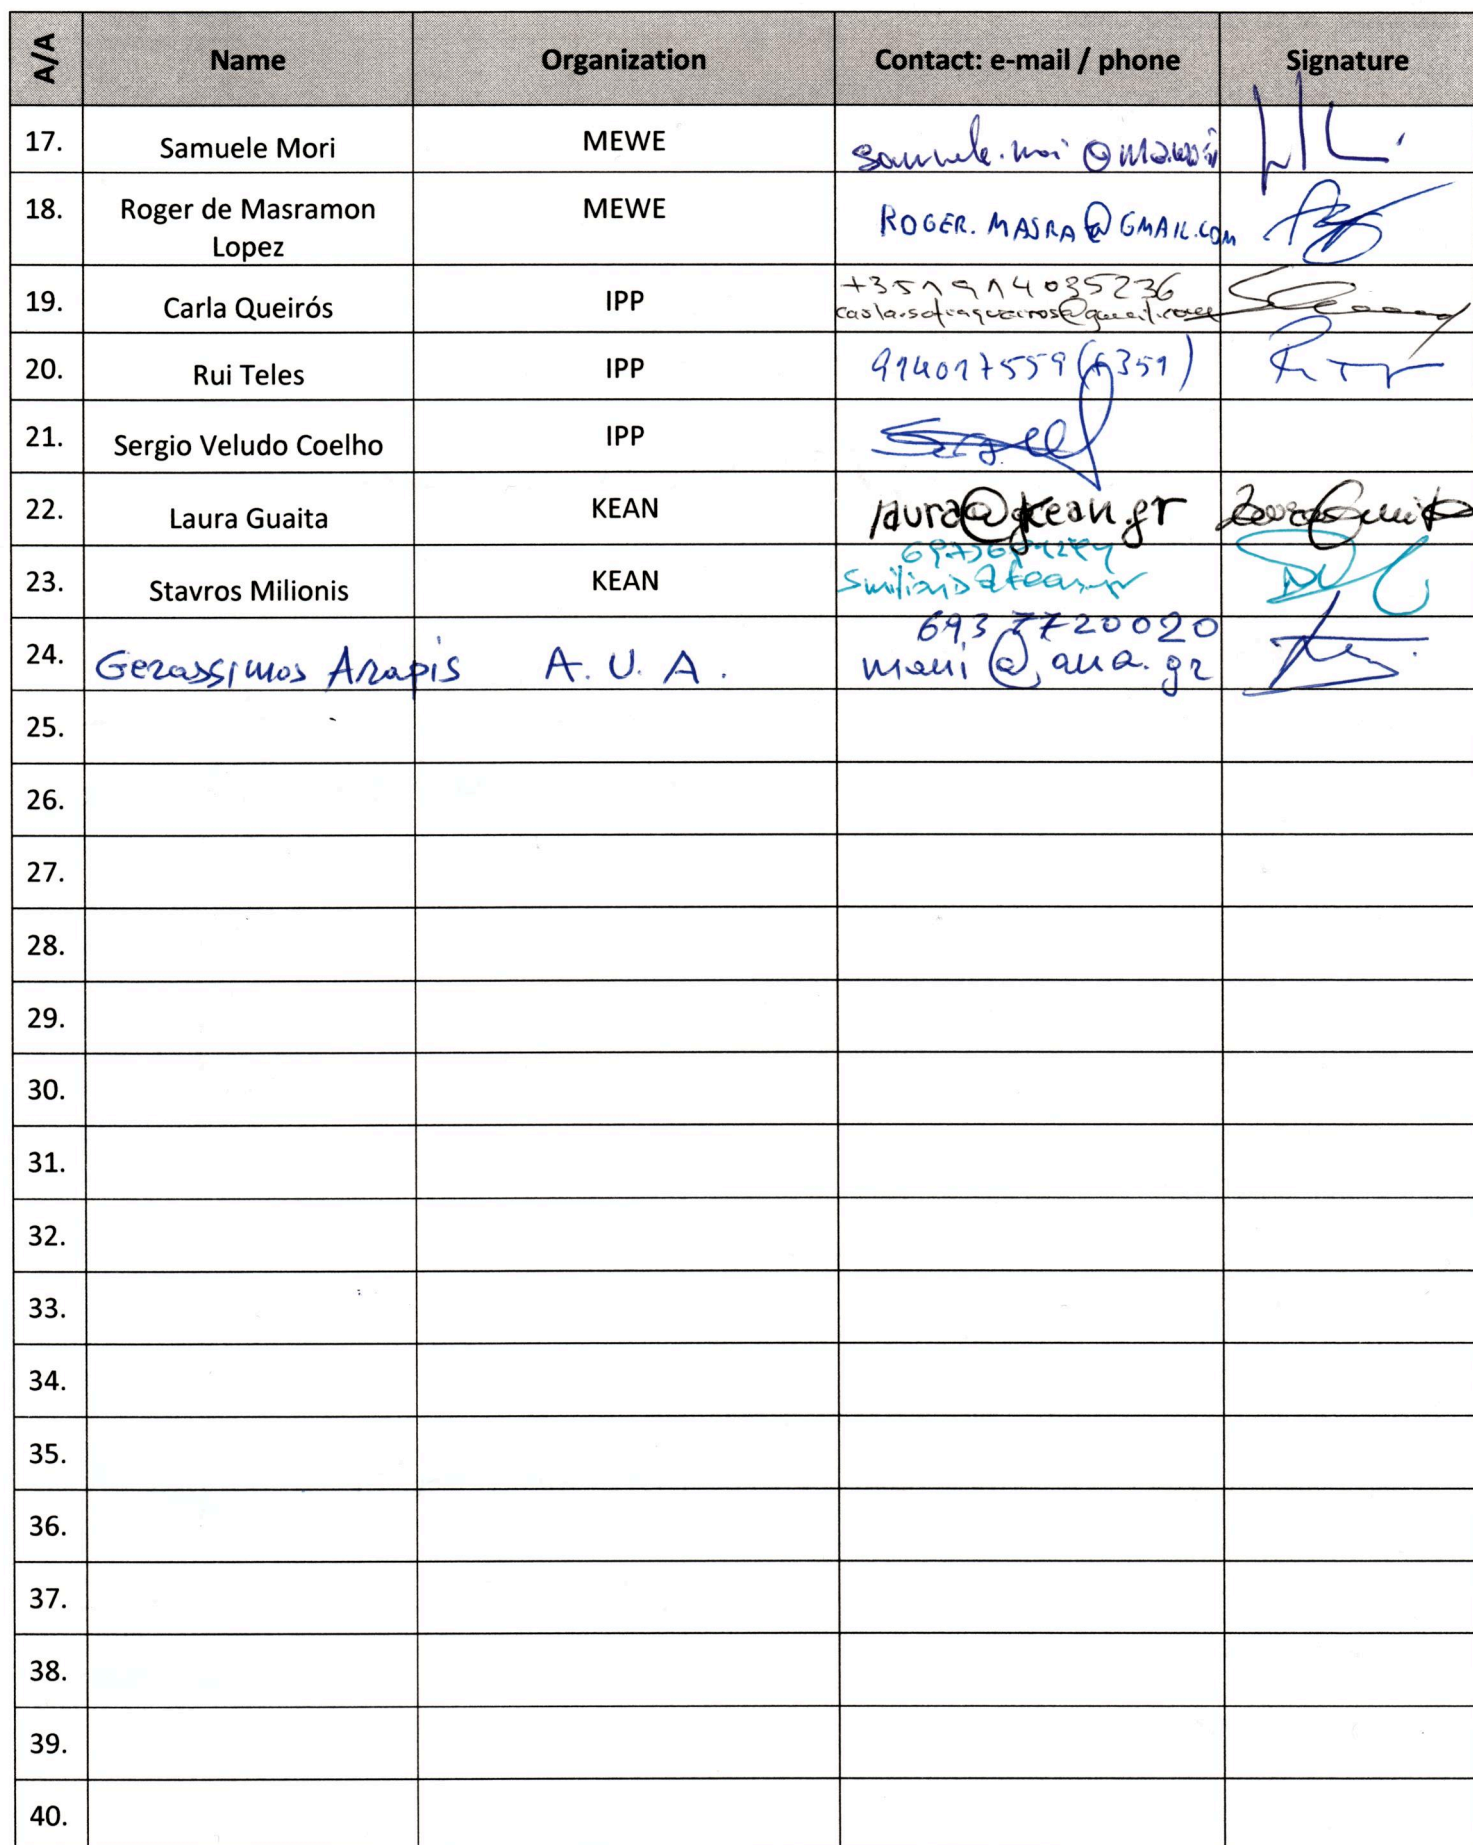 A/A Name Organization Contact: e-mail / phone Signature
17. Samuele Mori MEWE
18. Roger de Masramon Lopez MEWE ROGER.MASRA@GMAIL.COM
19. Carla Queirós IPP +351914035236
carla.sofiaqueiros@gmail.com
20. Rui Teles IPP 914017559 (+351)
21. Sergio Veludo Coelho IPP
22. Laura Guaita KEAN laura@kean.gr
23. Stavros Milionis KEAN
24. Gerassimos Arapis A.U.A. 6937720020
mani@aua.gr
25.
26.
27.
28.
29.
30.
31.
32.
33.
34.
35.
36.
37.
38.
39.
40.